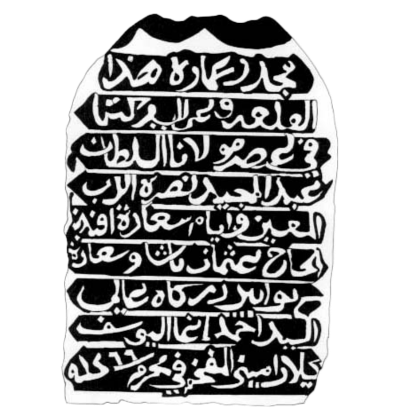 تجدد عمارة هذا
القلعة
في عصر مولانا السلطان
عبد المجيد نصره الرب
العزيز وايام سعادة افند
الحاج عثمان باشا وسعادة
بوابين دركاه عالي
السيد احمد اغا اليوسف
كيلار اميني المفخم في محرم ٦٦